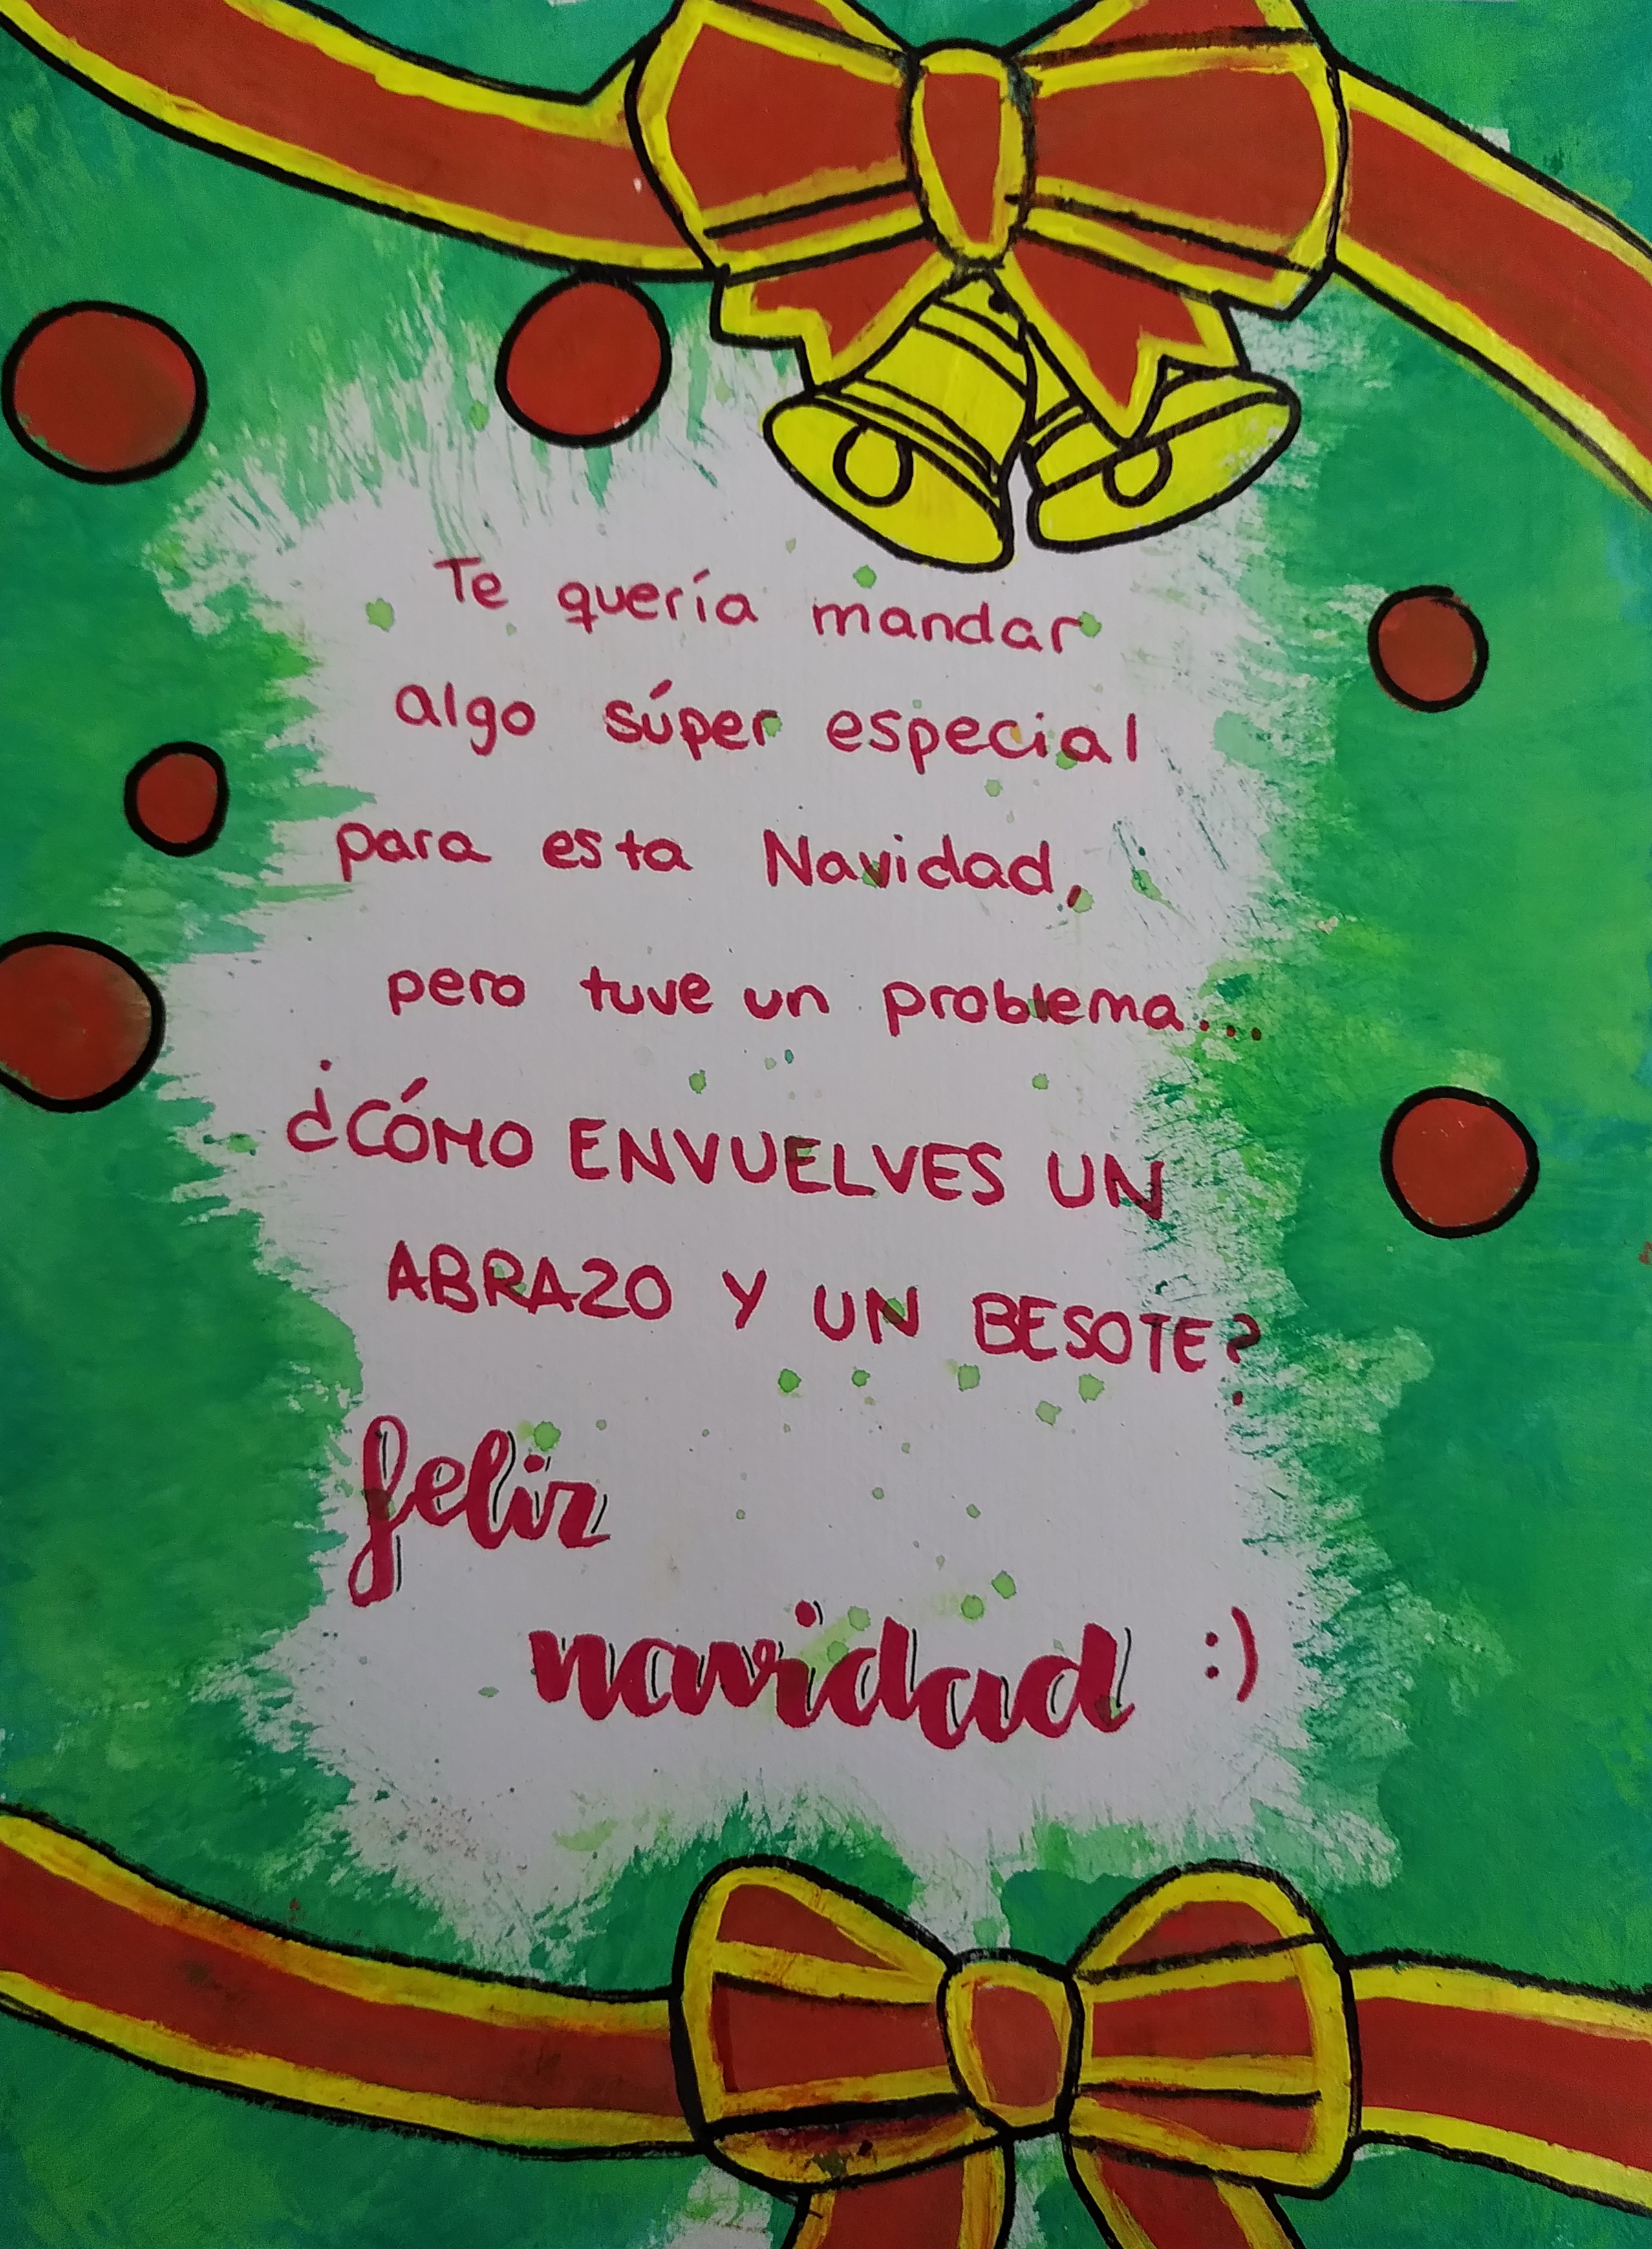 Te quería mandar
algo súper especial
para esta Navidad,
pero tuve un problema...
¿CÓMO ENVUELVES UN
ABRAZO Y UN BESOTE?
feliz
navidad :)